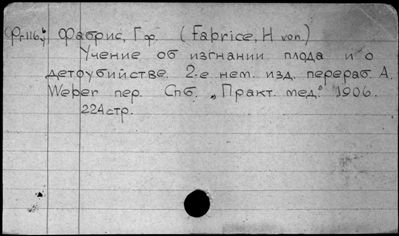 Фабрис, Г.ф. (Fabrice, H von.)
Учение об изгнании плода и о
детоубийстве. 2-е нем. изд. перераб. А.
Weber пер. Спб. „Практ. мед." 1906.
224стр.